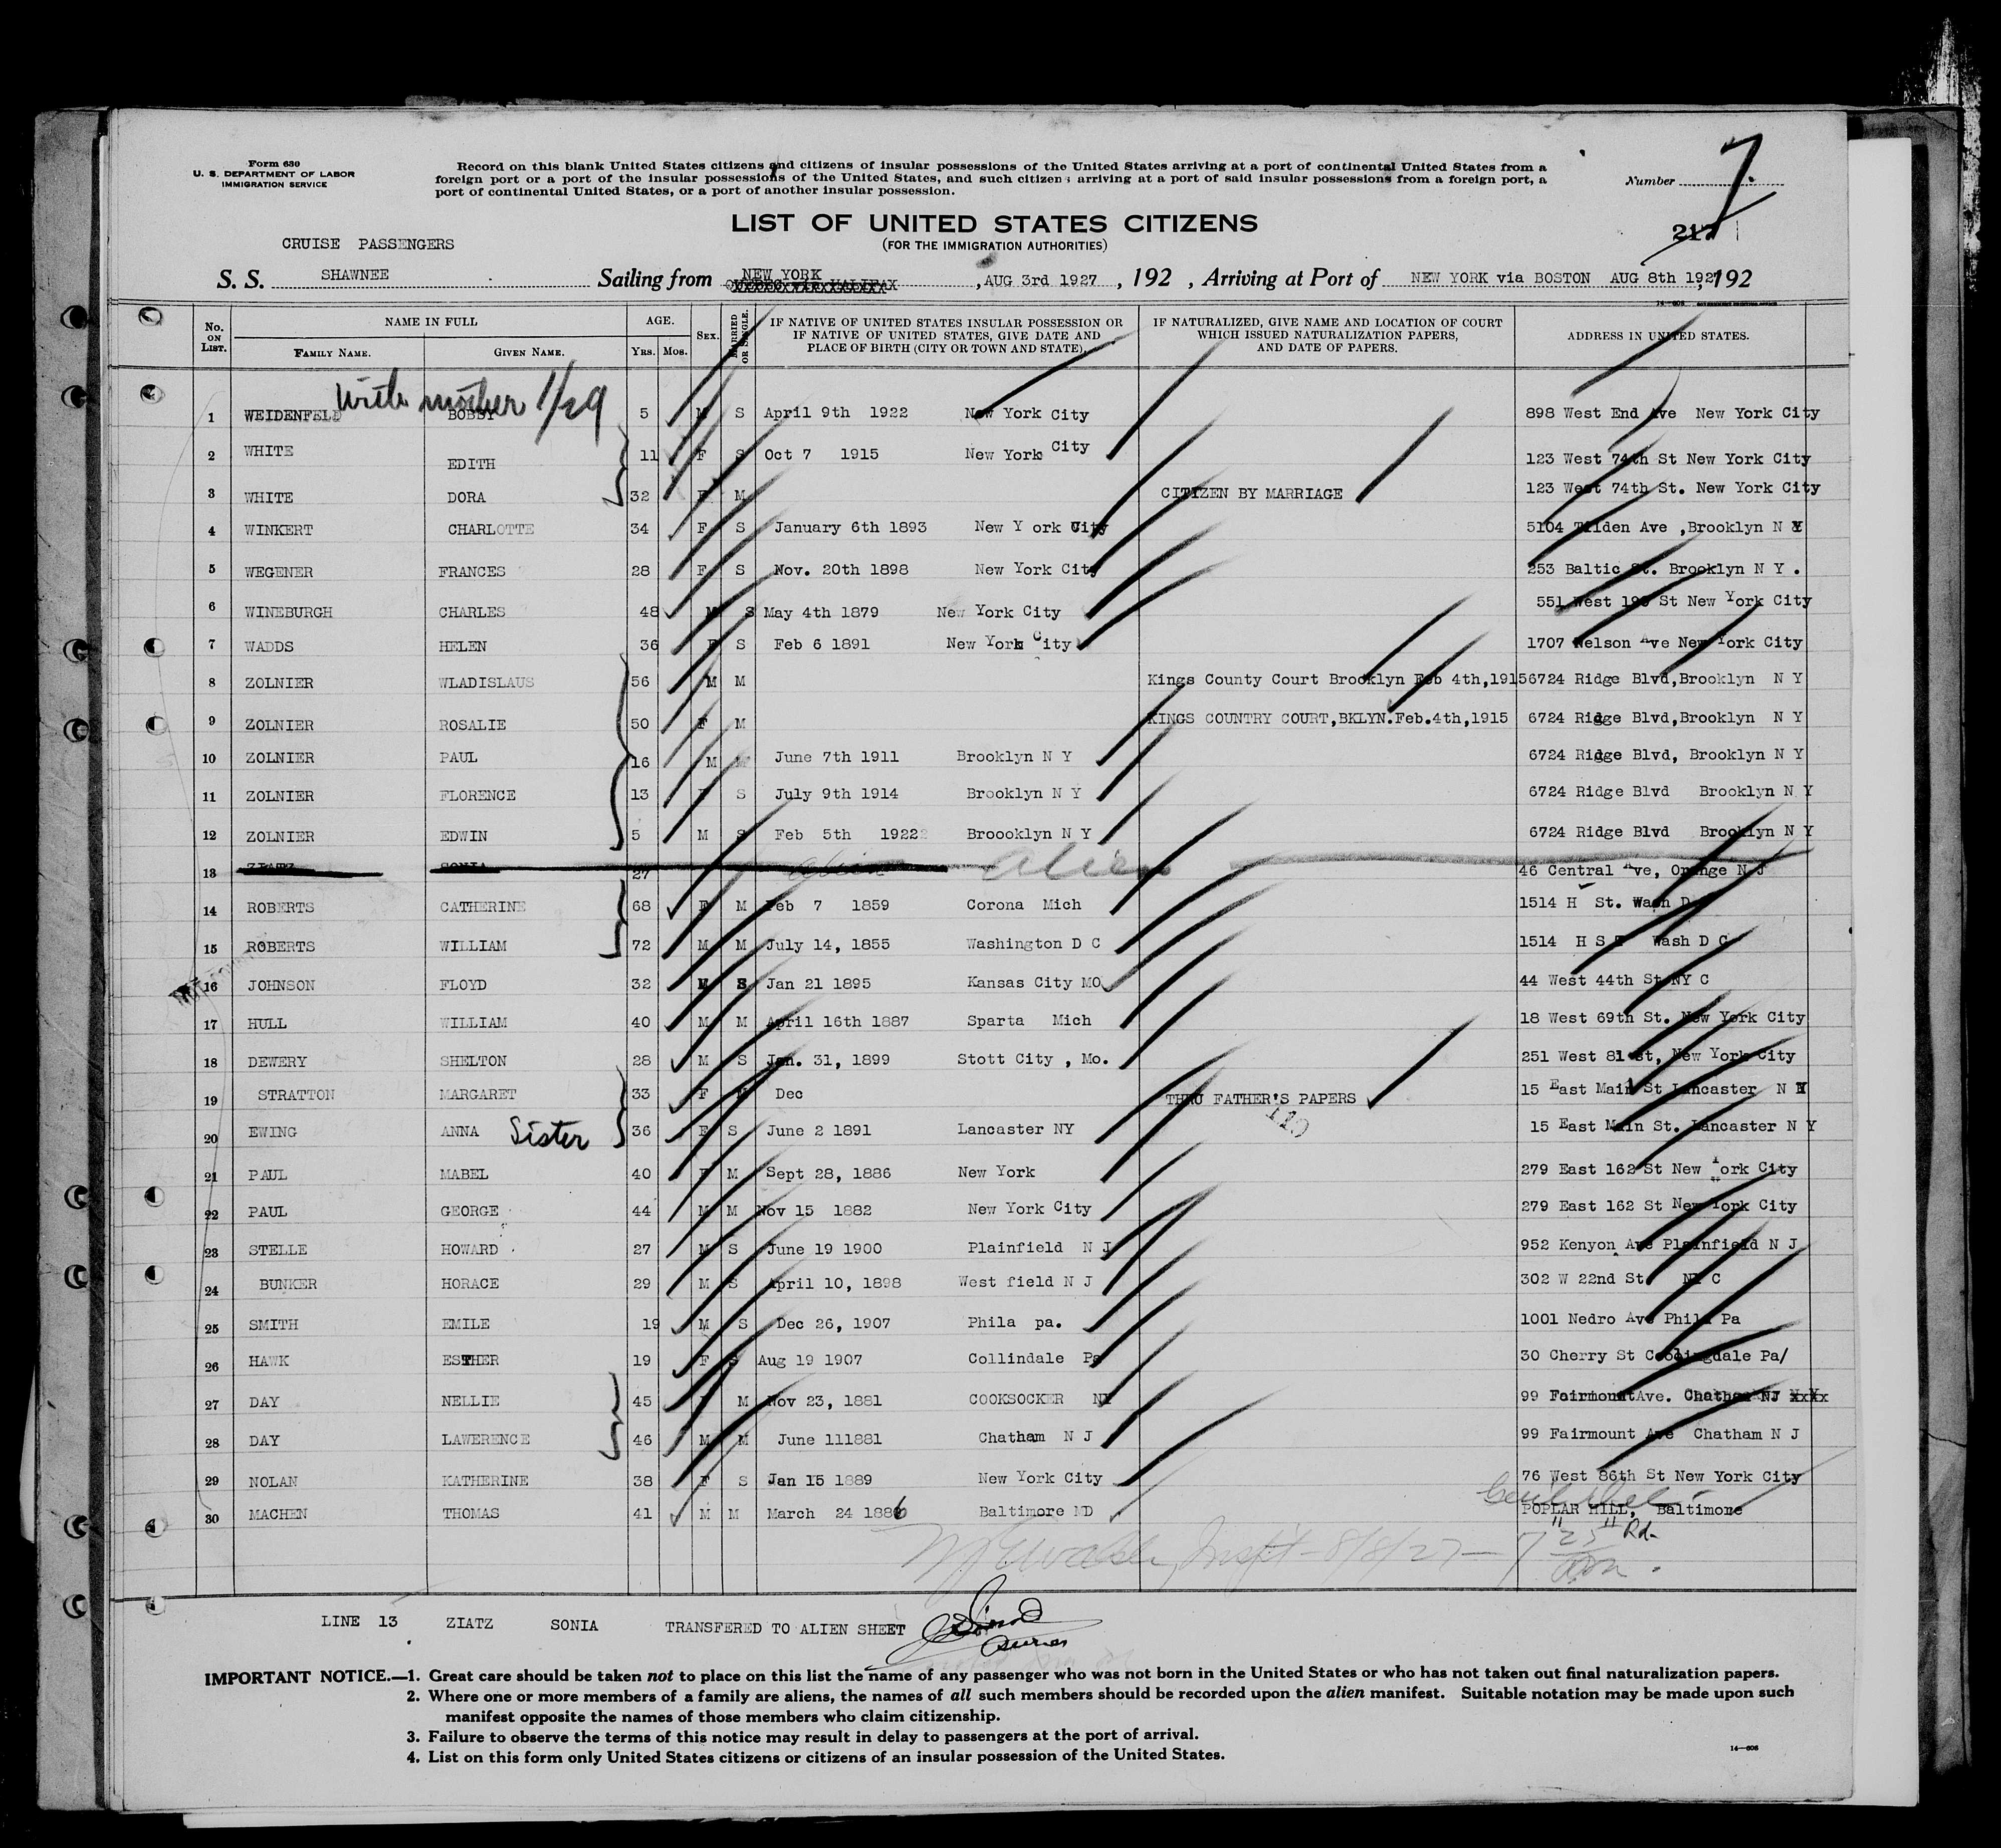 Form 630
U. S. DEPARTMENT OF LABOR
IMMIGRATION SERVICE
Record on this blank United States citizens and citizens of insular possessions of the United States arriving at a port of continental United States from a
foreign port or a port of the insular possessions of the United States, and such citizens arriving at a port of said insular possessions from a foreign port, a
port of continental United States, or a port of another insular possession.
Number 7.
LIST OF UNITED STATES CITIZENS
(FOR THE IMMIGRATION AUTHORITIES)
217
CRUISE PASSENGERS
S. S. SHAWNEE Sailing from NEW YORK , AUG 3rd 1927 , 192 , Arriving at Port of NEW YORK via BOSTON AUG 8th 192 , 192
No. ON LIST. NAME IN FULL FAMILY NAME. GIVEN NAME. AGE. Yrs. Mos. SEX. MARRIED OR SINGLE. IF NATIVE OF UNITED STATES INSULAR POSSESSION OR IF NATIVE OF UNITED STATES, GIVE DATE AND PLACE OF BIRTH (CITY OR TOWN AND STATE). IF NATURALIZED, GIVE NAME AND LOCATION OF COURT WHICH ISSUED NATURALIZATION PAPERS, AND DATE OF PAPERS. ADDRESS IN UNITED STATES.
with mother 1/29
1 WEIDENFELD BOBBY 5 M S April 9th 1922 New York City 898 West End Ave New York City
2 WHITE EDITH 11 F S Oct 7 1915 New York City 123 West 74th St New York City
3 WHITE DORA 32 F M CITIZEN BY MARRIAGE 123 West 74th St. New York City
4 WINKERT CHARLOTTE 34 F S January 6th 1893 New Y ork City 5104 Tilden Ave ,Brooklyn N Y
5 WEGENER FRANCES 28 F S Nov. 20th 1898 New York City 253 Baltic St. Brooklyn N Y .
6 WINEBURGH CHARLES 48 M S May 4th 1879 New York City 551 West St New York City
7 WADDS HELEN 36 F S Feb 6 1891 New York City 1707 Nelson Ave New York City
8 ZOLNIER WLADISLAUS 56 M M Kings County Court Brooklyn Feb 4th,1915 6724 Ridge Blvd,Brooklyn N Y
9 ZOLNIER ROSALIE 50 F M KINGS COUNTRY COURT,BKLYN.Feb.4th,1915 6724 Ridge Blvd,Brooklyn N Y
10 ZOLNIER PAUL 16 M June 7th 1911 Brooklyn N Y 6724 Ridge Blvd, Brooklyn N Y
11 ZOLNIER FLORENCE 13 F S July 9th 1914 Brooklyn N Y 6724 Ridge Blvd Brooklyn N Y
12 ZOLNIER EDWIN 5 M S Feb 5th 1922 Broooklyn N Y 6724 Ridge Blvd Brooklyn N Y
13 ZIATZ SONIA 27 alien alien 46 Central Ave, Orange N J
14 ROBERTS CATHERINE 68 F M Feb 7 1859 Corona Mich 1514 H St. Wash D
15 ROBERTS WILLIAM 72 M M July 14, 1855 Washington D C 1514 H ST Wash D C
16 JOHNSON FLOYD 32 M S Jan 21 1895 Kansas City MO 44 West 44th St NY C
17 HULL WILLIAM 40 M M April 16th 1887 Sparta Mich 18 West 69th St. New York City
18 DEWERY SHELTON 28 M S Jan. 31, 1899 Stott City , Mo. 251 West 81 st, New York City
19 STRATTON MARGARET 33 F M Dec THRU FATHER'S PAPERS 15 East Main St Lancaster N Y
20 EWING ANNA Sister 36 F S June 2 1891 Lancaster NY 15 East Main St. Lancaster N Y
21 PAUL MABEL 40 F M Sept 28, 1886 New York 279 East 162 St New York City
22 PAUL GEORGE 44 M M Nov 15 1882 New York City 279 East 162 St New York City
23 STELLE HOWARD 27 M S June 19 1900 Plainfield N J 952 Kenyon Ave Plainfield N J
24 BUNKER HORACE 29 M S April 10, 1898 West field N J 302 W 22nd St NY C
25 SMITH EMILE 19 M S Dec 26, 1907 Phila pa. 1001 Nedro Ave Phila Pa
26 HAWK ESTHER 19 F S Aug 19 1907 Collindale Pa 30 Cherry St Coolingdale Pa/
27 DAY NELLIE 45 F M Nov 23, 1881 COOKSOCKER NY 99 Fairmount Ave. Chatham NJ
28 DAY LAWERENCE 46 M M June 111881 Chatham N J 99 Fairmount Ave Chatham N J
29 NOLAN KATHERINE 38 F S Jan 15 1889 New York City 76 West 86th St New York City
30 MACHEN THOMAS 41 M M March 24 1886 Baltimore MD POPLAR HILL, Baltimore
" 25 " Rd.
Inspt - 8/8/27 -
LINE 13 ZIATZ SONIA TRANSFERED TO ALIEN SHEET
IMPORTANT NOTICE.—1. Great care should be taken not to place on this list the name of any passenger who was not born in the United States or who has not taken out final naturalization papers.
2. Where one or more members of a family are aliens, the names of all such members should be recorded upon the alien manifest. Suitable notation may be made upon such
manifest opposite the names of those members who claim citizenship.
3. Failure to observe the terms of this notice may result in delay to passengers at the port of arrival.
4. List on this form only United States citizens or citizens of an insular possession of the United States.
14—608